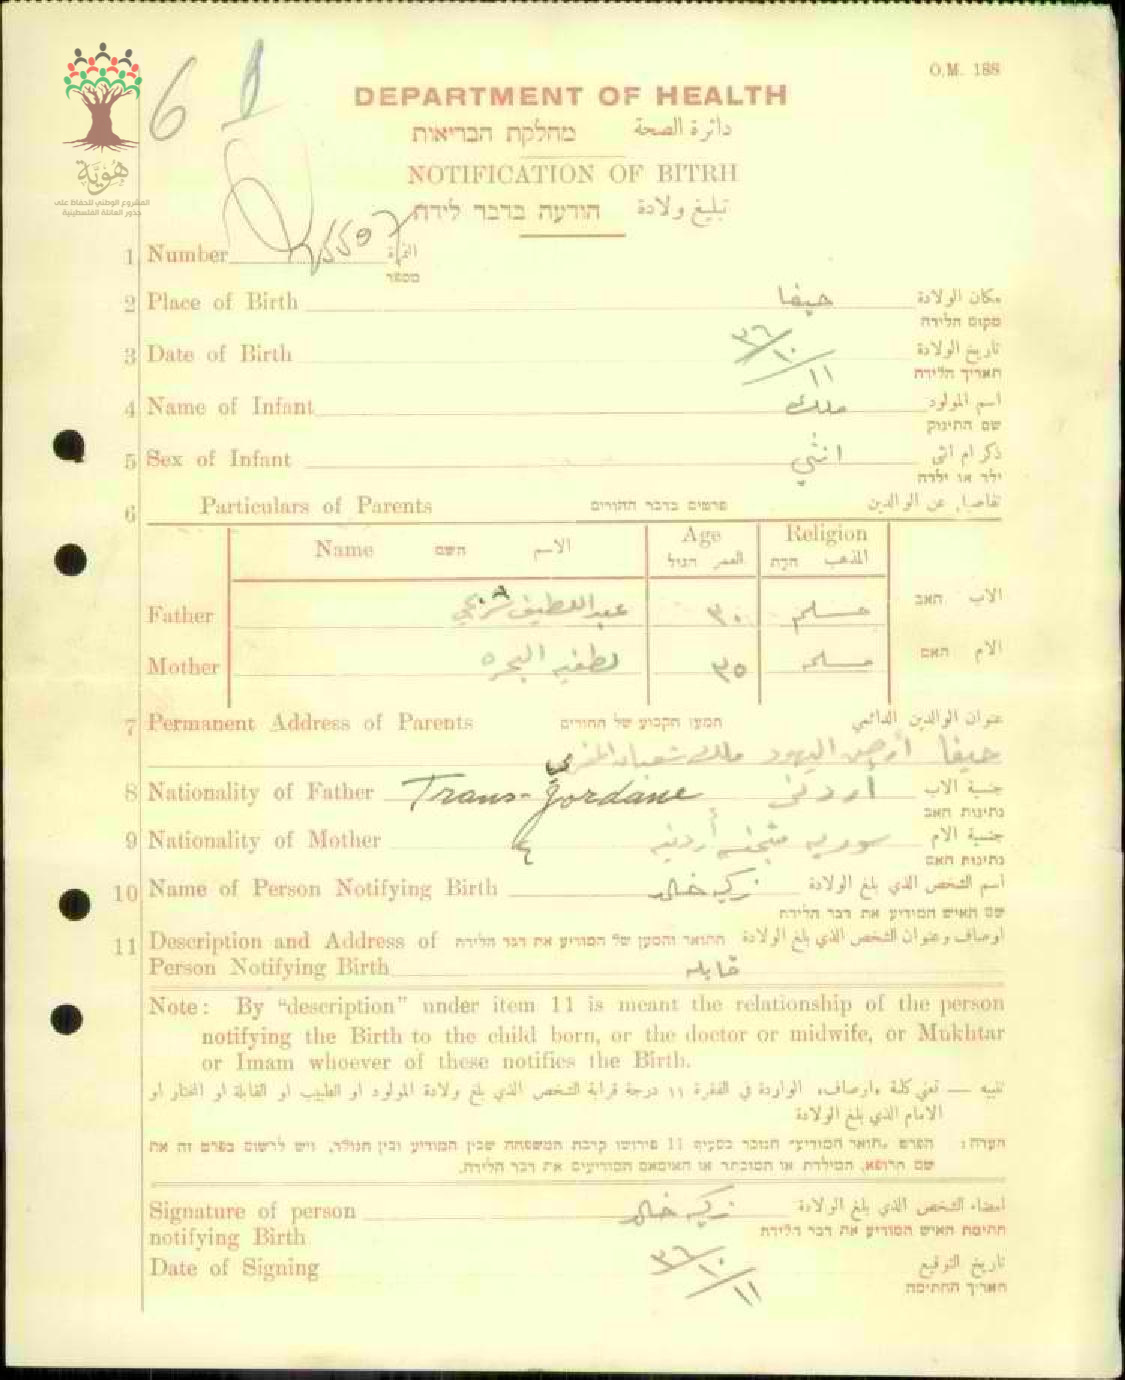 هُوِيَّة
المشروع الوطني للحفاظ على
جذور العائلة الفلسطينية
6
O.M. 188
DEPARTMENT OF HEALTH
מחלקת הבריאות دائرة الصحة
NOTIFICATION OF BITRH
הודעה בדבר לידה تبليغ ولادة
1 Number النمرة
מספר
2 Place of Birth حيفا مكان الولادة
מקום הלידה
3 Date of Birth ٣٦/١٠/١١ تاريخ الولادة
תאריך הלידה
4 Name of Infant ملك اسم المولود
שם התינוק
5 Sex of Infant انثي ذكر ام انثى
ילד או ילדה
6 Particulars of Parents פרטים בדבר ההורים تفاصيل عن الوالدين
Name השם الاسم Age Religion
العمر הגיל المذهب הדת
Father عبد اللطيف ٣٠ مسلم الاب האב
Mother لطفيه ٣٥ مسلمه الام האם
7 Permanent Address of Parents המען הקבוע של ההורים عنوان الوالدين الدائمي
حيفا أرض اليهود ملك شعبان المغربي
8 Nationality of Father Trans-Jordane اردني جنسية الاب
נתינות האב
9 Nationality of Mother سوريه أردنيه جنسية الام
נתינות האם
10 Name of Person Notifying Birth زكيه خالد اسم الشخص الذي بلغ الولادة
שם האיש המודיע את דבר הלידה
11 Description and Address of התואר והמען של המודיע את דבר הלידה اوصاف وعنوان الشخص الذي بلغ الولادة
Person Notifying Birth قابله
Note: By “description” under item 11 is meant the relationship of the person
notifying the Birth to the child born, or the doctor or midwife, or Mukhtar
or Imam whoever of these notifies the Birth.
تنبيه — تعني كلمة «اوصاف» الواردة في الفقرة ١١ درجة قرابة الشخص الذي بلغ ولادة المولود او الطبيب او القابلة او المختار او
الامام الذي بلغ الولادة
הערה: הפרט „תואר המודיע” הנזכר בסעיף 11 פירושו קרבת המשפחה שבין המודיע ובין הנולד, ויש לרשום בפרט זה את
שם הרופא, המילדת או המוכתר או האימאם המודיעים את דבר הלידה.
Signature of person زكيه خالد امضاء الشخص الذي بلغ الولادة
notifying Birth חתימת האיש המודיע את דבר הלידה
Date of Signing ٣٦/١٠/١١ تاريخ التوقيع
תאריך החתימה